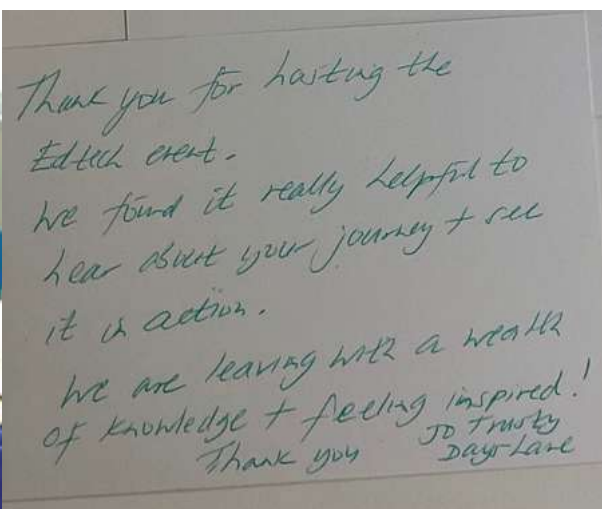 Thank you for hosting the
Edtech event.
We found it really helpful to
hear about your journey + see
it in action.
We are leaving with a wealth
of knowledge + feeling inspired!
Thank you Jo Trusty
Days Lane